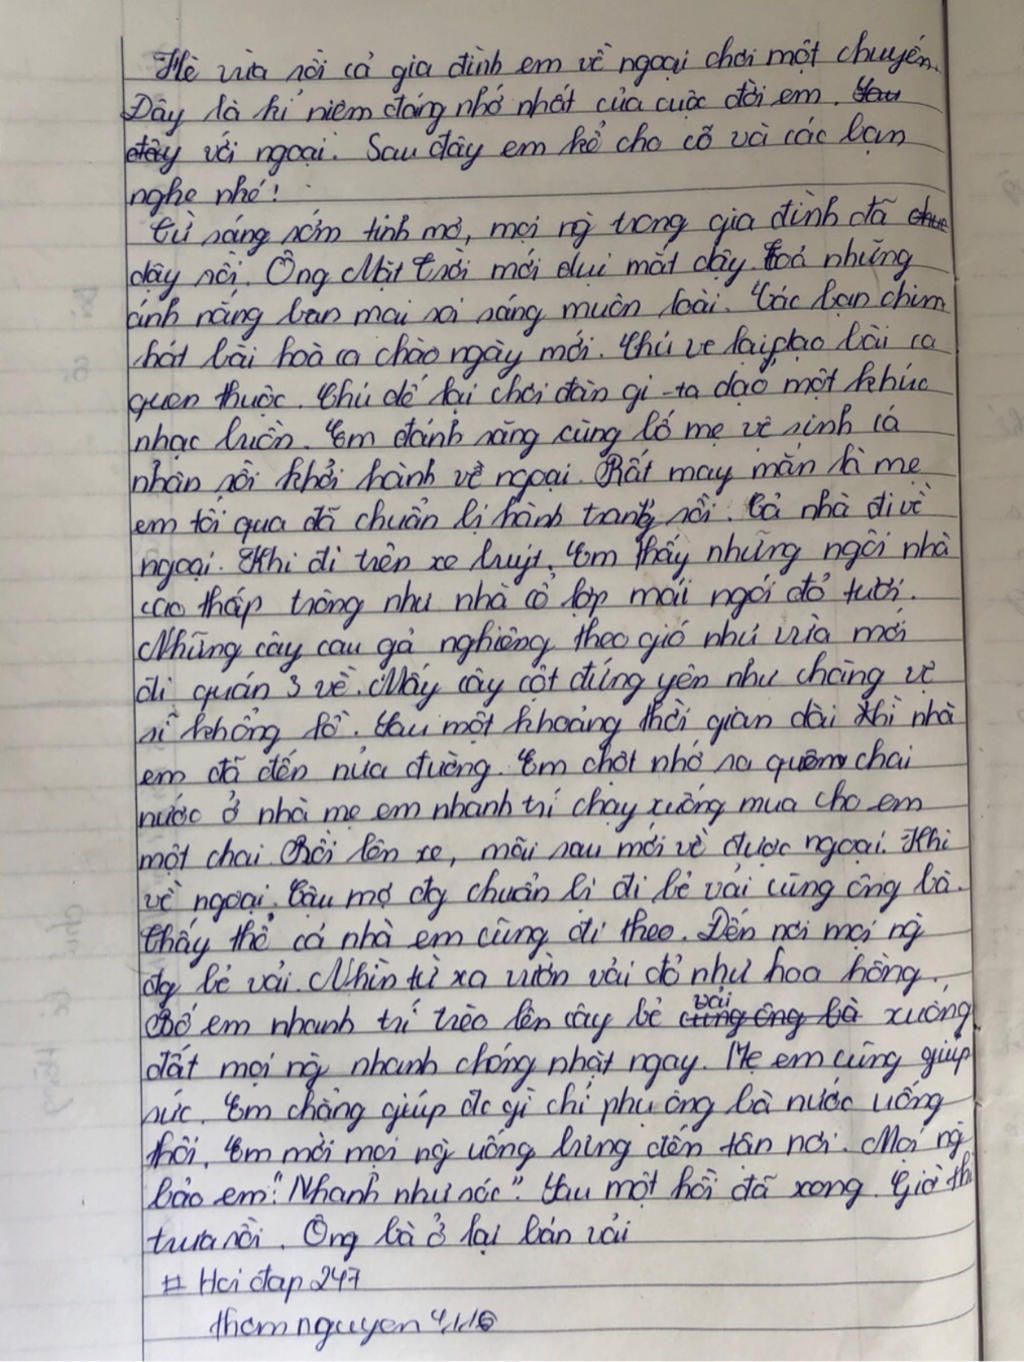 Hè vừa rồi cả gia đình em về ngoại chơi một chuyến.
Đây là kỉ niệm đáng nhớ nhất của cuộc đời em. Sau
đây với ngoại. Sau đây em kể cho cô và các bạn
nghe nhé!
Từ sáng sớm tinh mơ, mọi ng trong gia đình đã
dậy rồi. Ông Mặt Trời mới dụi mắt dậy. Toả những
ánh nắng ban mai rọi sáng muôn loài. Các bạn chim
hát bài hoà ca chào ngày mới. Chú ve lại dạo bài ca
quen thuộc. Chú dế lại chơi đàn gi-ta dạo một khúc
nhạc buồn. Em đánh răng cùng bố mẹ vệ sinh cá
nhân rồi khởi hành về ngoại. Rất may mắn là mẹ
em tối qua đã chuẩn bị hành trang rồi. Cả nhà đi về
ngoại. Khi đi trên xe buýt. Em thấy những ngôi nhà
cao thấp trông như nhà cổ lợp mái ngói đỏ tươi.
Những cây cau gả nghiêng theo gió như vừa mới
đi quán 3 về. Mấy cây cột đứng yên như chàng vệ
sĩ khổng lồ. Sau một khoảng thời gian dài khi nhà
em đã đến nửa đường. Em chợt nhớ ra quên chai
nước ở nhà mẹ em nhanh trí chạy xuống mua cho em
một chai. Rồi lên xe, mãi sau mới về được ngoại. Khi
về ngoại. Cậu mợ đg chuẩn bị đi bẻ vải cùng ông bà.
Thấy thế cả nhà em cũng đi theo. Đến nơi mọi ng
đg bẻ vải. Nhìn từ xa vườn vải đỏ như hoa hồng.
Bố em nhanh trí trèo lên cây bẻ vải cùng ông bà xuống
đất mọi ng nhanh chóng nhặt ngay. Mẹ em cũng giúp
sức. Em chẳng giúp đc gì chỉ phụ ông bà nước uống
thôi. Em mời mọi ng uống bưng đến tận nơi. Mọi ng
bảo em: "Nhanh như sóc". Sau một hồi đã xong. Giờ thì
trưa rồi. Ông bà ở lại bán vải
# Hoi đap 247
thomnguyen